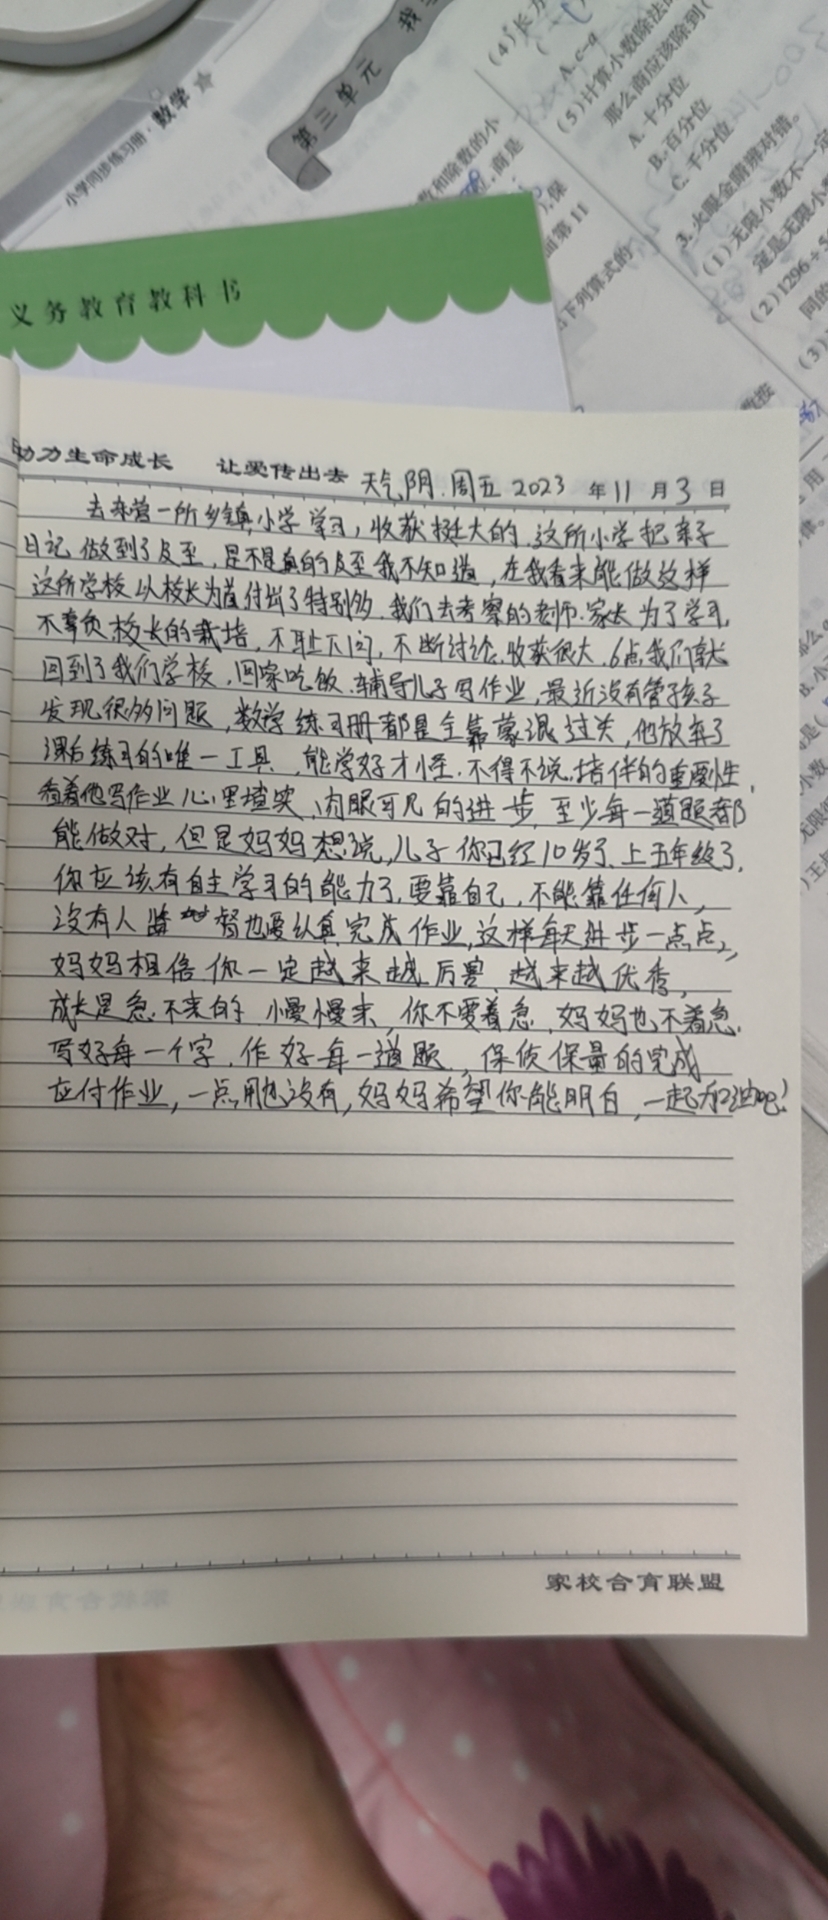 第三单元 我
小学同步练习册·数学
(4)长方
A.c-a
(5)计算小数除法
那么商应该除到(
A.十分位
B.百分位
C.千分位
3.火眼金睛辨对错。
(1)无限小数不一定
定是无限小数
(2)1296÷5
同的
(3)
数和除数的小
,商是
),保
面第11
下列算式的
义务教育教科书
助力生命成长 让爱传出去 天气阴.周五 2023 年 11 月 3 日
去东营一所乡镇小学学习，收获挺大的.这所小学把亲子
日记做到了及至，是不是真的及至我不知道，在我看来能做这样
这所学校以校长为首付出了特别多.我们去考察的老师.家长为了学习，
不辜负校长的栽培，不耻下问，不断讨论.收获很大.6点我们就
回到了我们学校.回家吃饭.辅导儿子写作业，最近没有管孩子
发现很多问题，数学练习册都是全靠蒙混过关，他放弃了
课后练习的唯一工具，能学好才怪.不得不说.陪伴的重要性，
看着他写作业心里堵实，肉眼可见的进步，至少每一道题都
能做对，但是妈妈想说，儿子你已经10岁了.上五年级了，
你应该有自主学习的能力了，要靠自己，不能靠任何人，
没有人监督也要认真完成作业，这样每天进步一点点，
妈妈相信你一定越来越厉害，越来越优秀，
成长是急不来的，慢慢来，你不要着急，妈妈也不着急.
写好每一个字，作好每一道题，保质保量的完成
应付作业，一点用也没有，妈妈希望你能明白，一起加油吧！
家校合育联盟